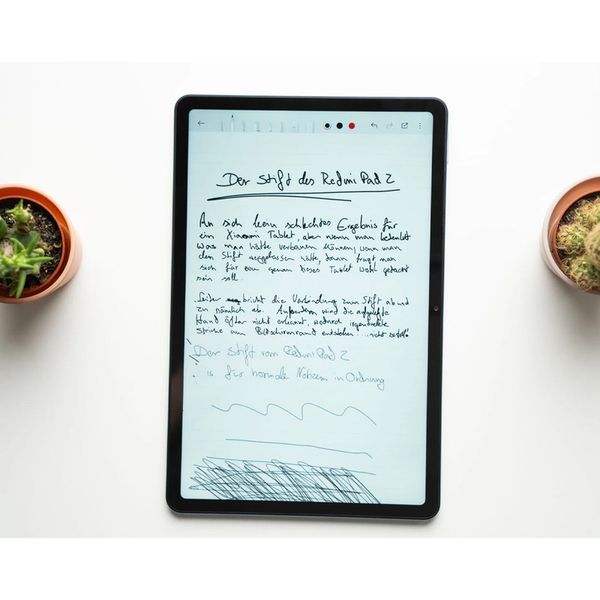 Der Stift des Redmi Pad 2
An sich kein schlechtes Ergebnis für
ein Xiaomi Tablet, aber wenn man bedenkt
was man hätte verbauen können, wenn man
den Stift ausgelassen hätte, dann fragt man
sich für wen genau dieses Tablet wohl gedacht
sein soll.
Leider bricht die Verbindung zum Stift ab und
zu nämlich ab. Außerdem wird die aufgelegte
Hand öfter nicht erkannt, wodurch irgendwelche
Striche am Bildschirmrand entstehen ...nicht
Der Stift vom Redmi Pad 2
ist für normale Notizen in Ordnung